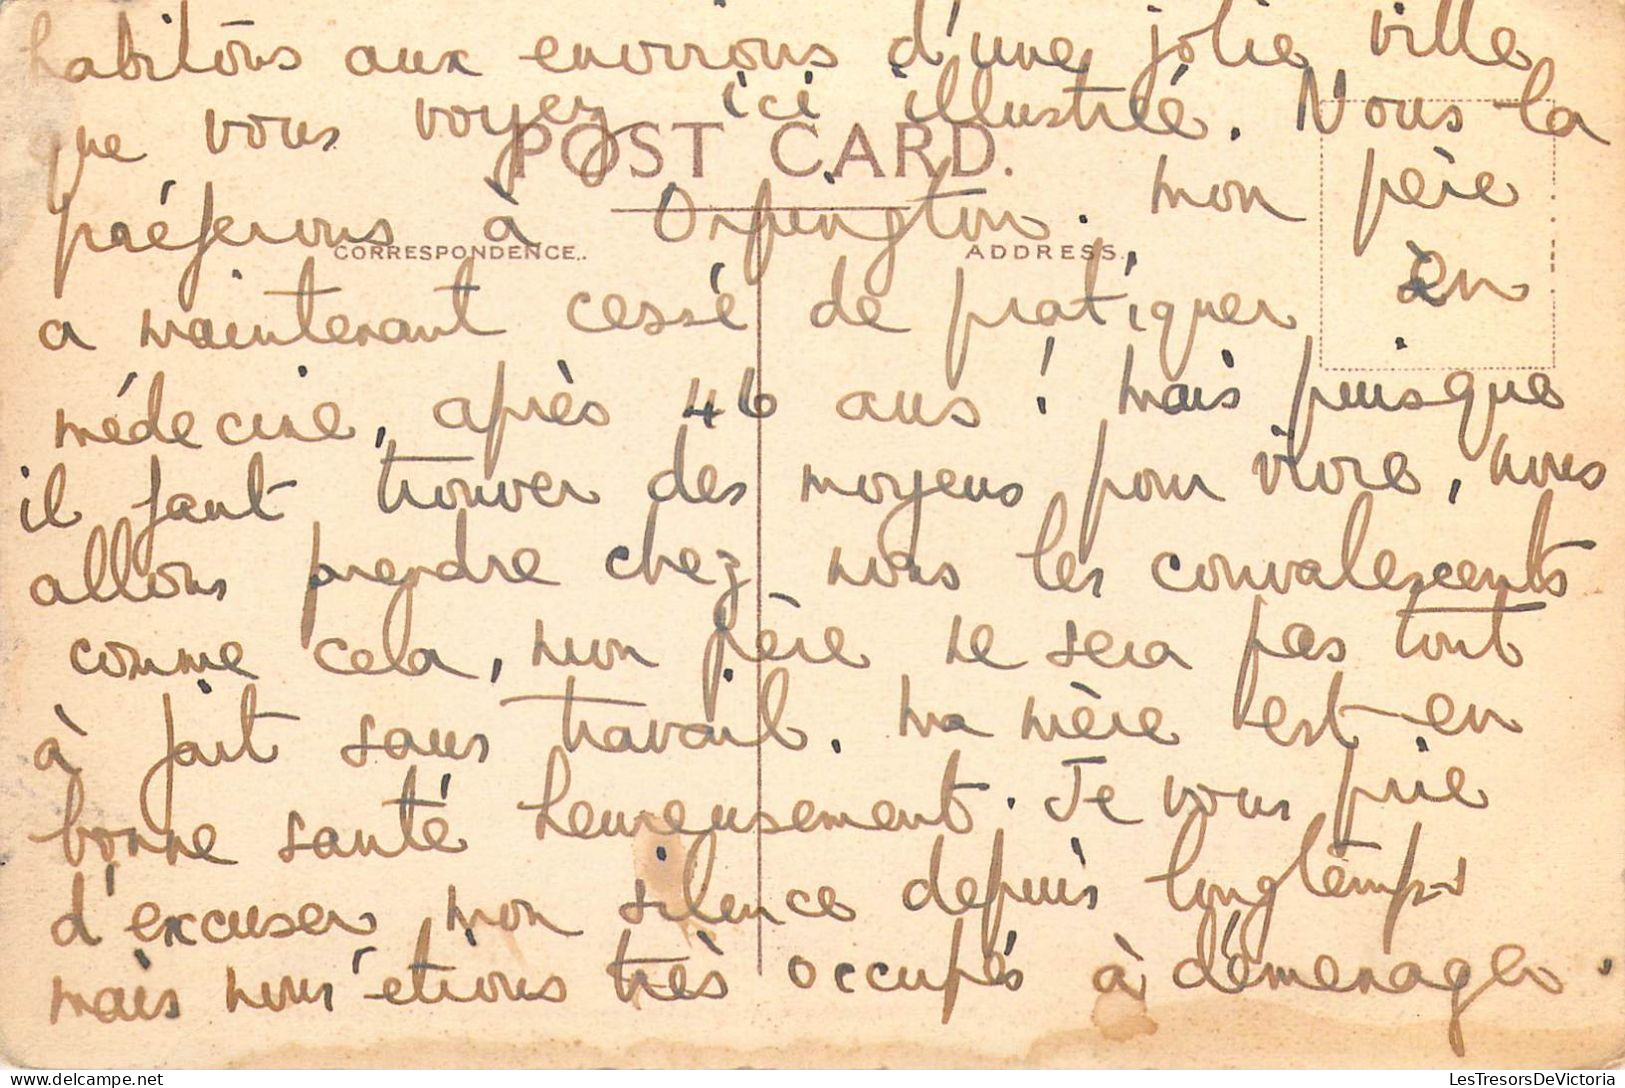 habitons aux environs d'une jolie ville
que vous voyez ici illustré. Nous la
POST CARD.
préferons à Orpington. Mon père
CORRESPONDENCE.
ADDRESS.
a maintenant cessé de pratiquer en
médecine, après 46 ans ! Mais puisque
il faut trouver des moyens pour vivre, nous
allons prendre chez nous les convalescents
comme cela, mon père ne sera pas tout
à fait sans travail. Ma mère est en
bonne santé heureusement. Je vous prie
d'excuser mon silence depuis longtemps
mais nous étions très occupés à démenager.
LesTresorsDeVictoria